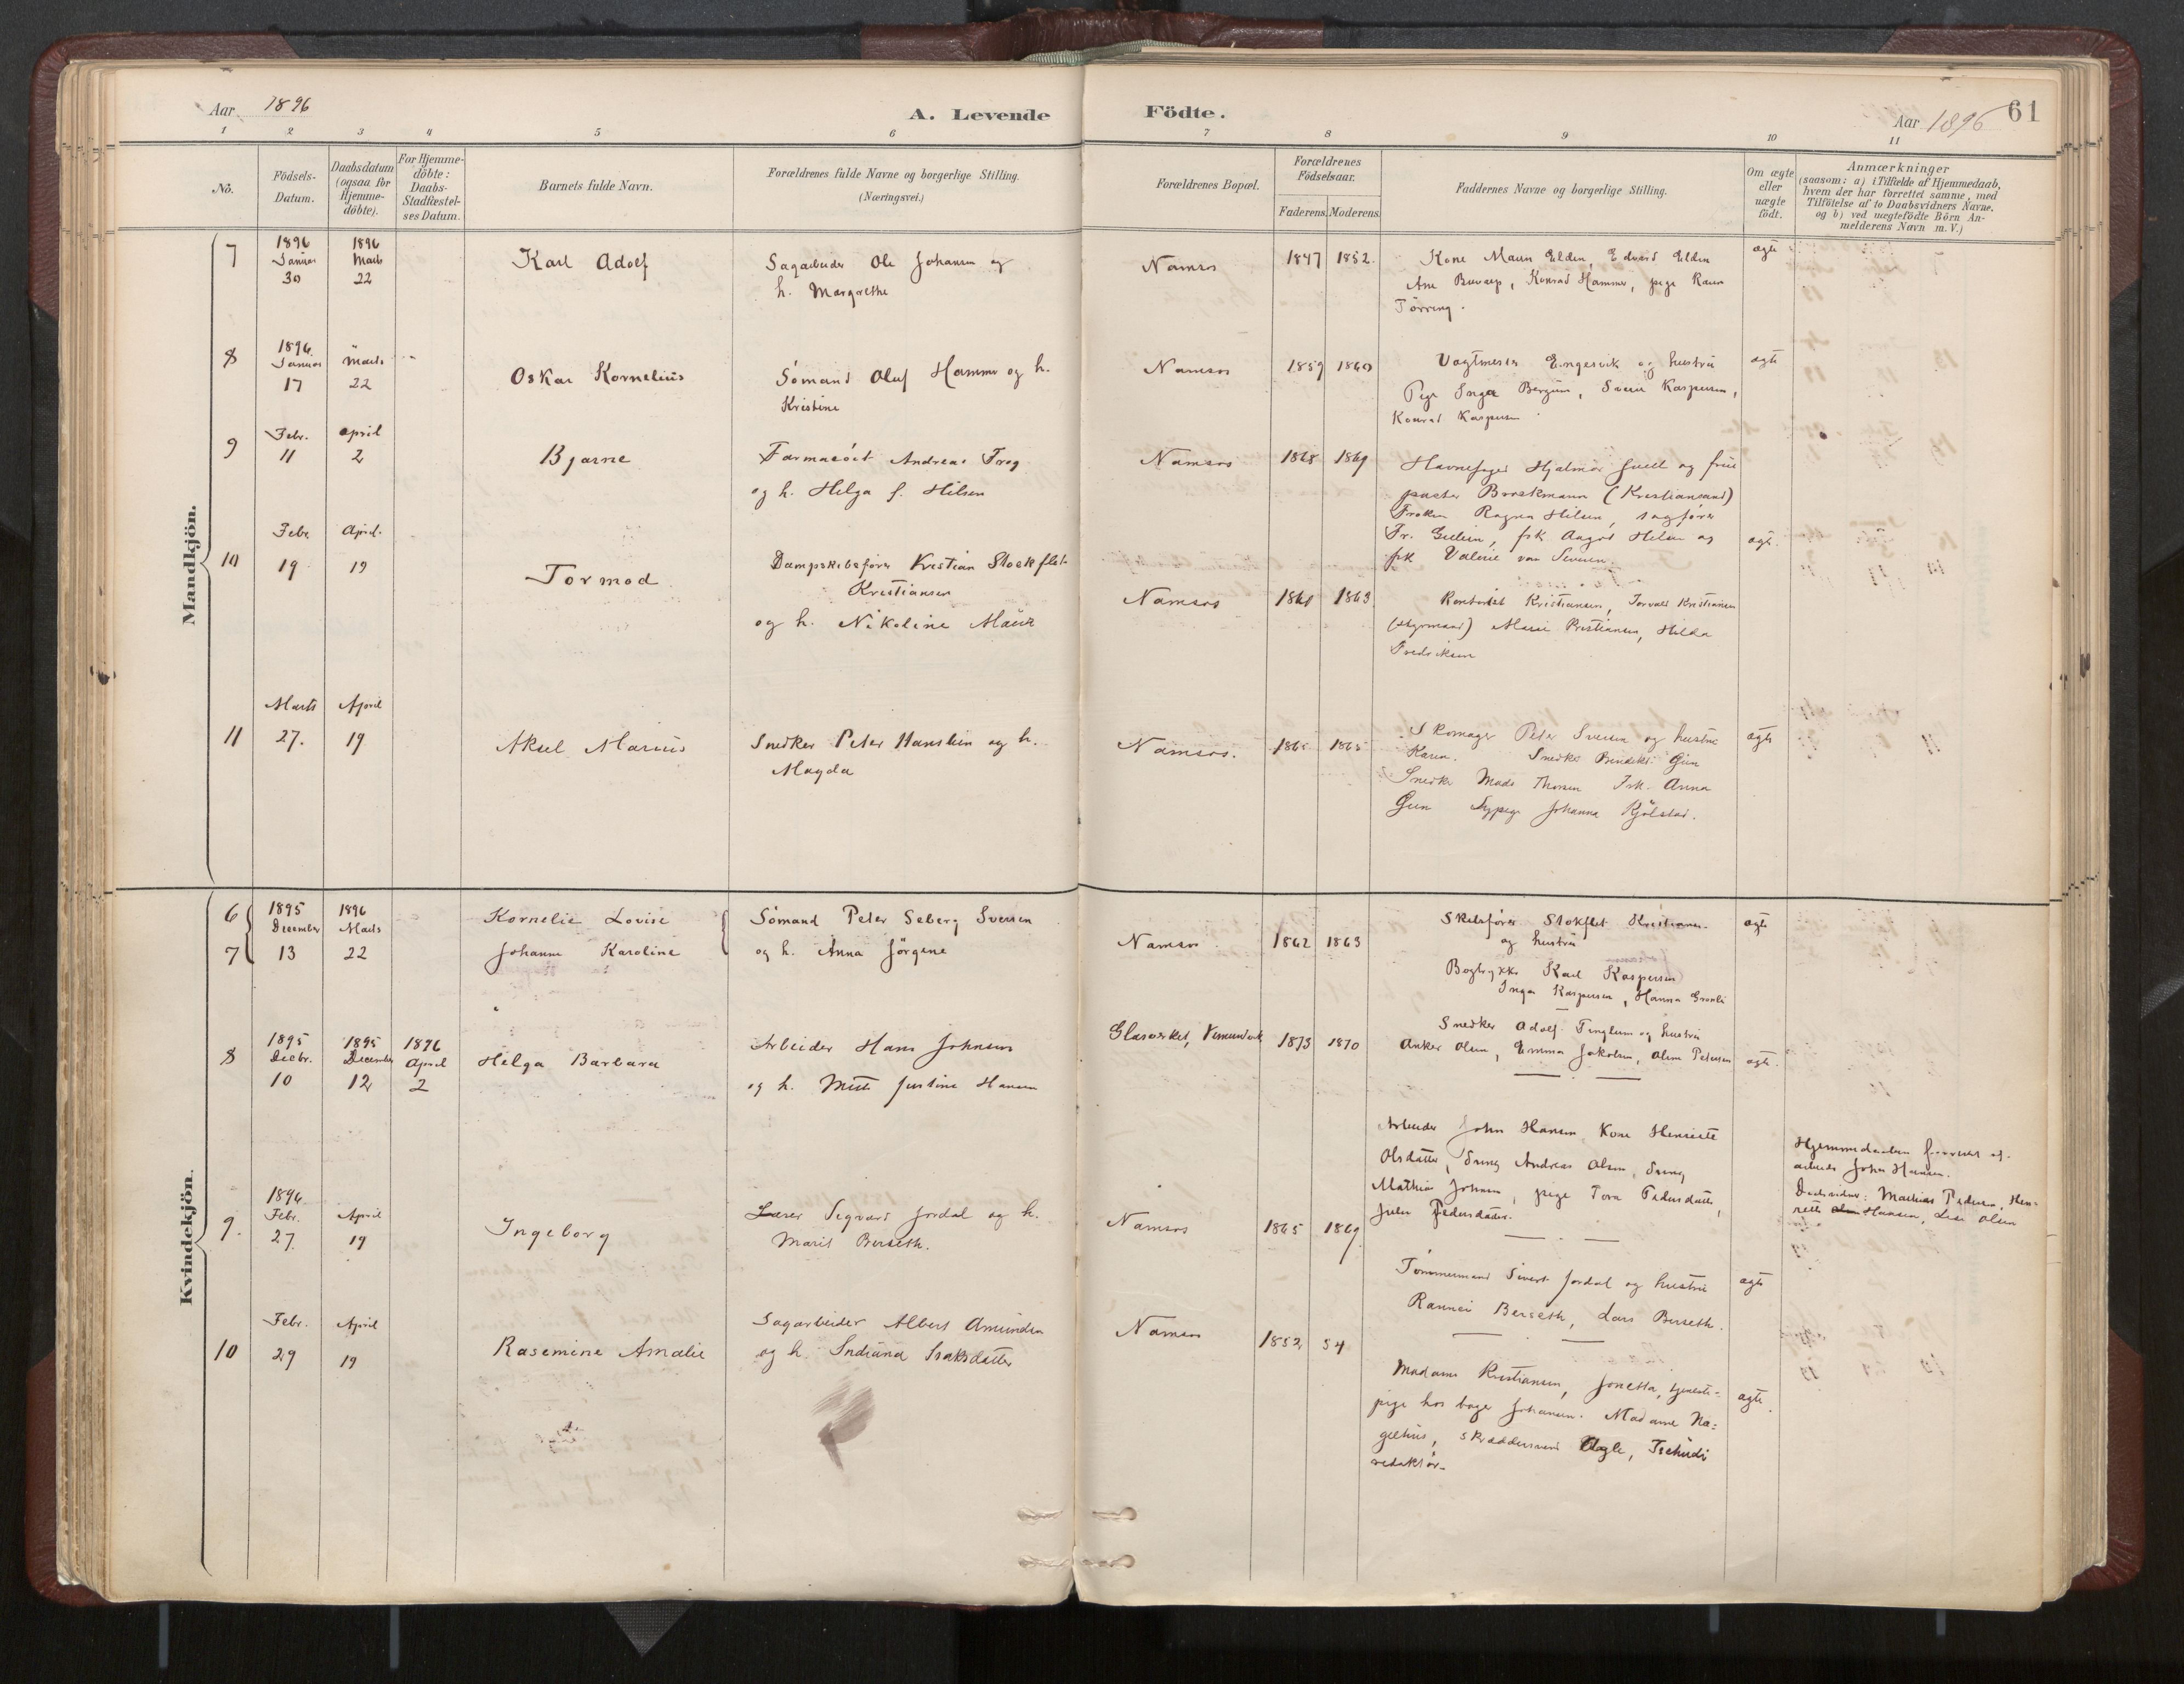 Aar 1896
A. Levende
Födte.
Aar 1896
61
1 2 3 4 5 6 7 8 9 10 11
No.
Födsels-
Datum.
Daabsdatum
(ogsaa for
Hjemme-
döbte).
For Hjemme-
döbte:
Daabs-
Stadfæstel-
ses Datum.
Barnets fulde Navn.
Forældrenes fulde Navne og borgerlige Stilling.
(Næringsvei.)
Forældrenes Bopæl.
Forældrenes
Födselsaar.
Faderens. Moderens.
Faddernes Navne og borgerlige Stilling.
Om ægte
eller
uægte
födt.
Anmærkninger
(saasom: a) i Tilfælde af Hjemmedaab,
hvem der har forrettet samme, med
Tilföielse af to Daabsvidners Navne,
og b) ved uægtefödte Börn An-
melderens Navn m. V.)
Mandkjön.
7
1896
Januar
30
1896
Marts
22
Karl Adolf
Sagarbeider Ole Johansen og
h. Margrethe
Namsos
1847 1852.
Kone Maren Elden, Edvard Elden
Ane, Konrad Hammer, pige
Törring.
ægte
8
1896
Januar
17
Marts
22
Oskar Kornelius
Sömand Oluf Hammer og h.
Kristine
Namsos
1859 1860
Vagtmester Engesvik og hustru
Pige Inga Bergum, Sverre Kaspersen,
Konrad Kaspersen
ægte
9
Febr.
11
April
2
Bjarne
Farmaceöit Andreas Frog
og h. Helga f. Hilsen
Namsos
1868 1869
Havnefoged Hjalmar Juell og frue
pastor Brockmann (Kristiansand)
Fröken Ragna Hilsen, sagförer
Fr., frk Aagot Hilsen og
frk Valerie von Severen
ægte.
10
Febr.
19
April.
19
Tormod
Dampskibsförer Kristian Stockflet-
Kristiansen
og h. Nikoline
Namsos
1861 1863
Kontorist Kristiansen, Torvald Kristiansen
(styrmand) Marie Kristiansen, Hilda
Fredriksen
11
Marts
27.
April
19
Aksel Marius
Snedker Peter Hanssen og h.
Magda
Namsos.
1865 1865
Skomager Peter Svensen og hustru
Karen. Snedker
Snedker Mads Thorsen Frk. Anna
Sypige Johanna Kjölstad.
ægte
Kvindekjön.
6
7
1895
December
13
1896
Marts
22
Kornelie Lovise
Johanne Karoline
Sömand Peter Seberg Svensen
og h. Anna Jörgine
Namsos
1862 1863
Skibsförer Stokflet Kristiansen
og hustru
Bogtrykker Karl Kaspersen
Inga Kaspersen, Hanna
ægte
8
1895
Decbr.
10
1895
December
12
1896
April
2
Helga Barbara
Arbeider Hans Johnsen
og h. Mette Justine Hansen
Glasverket, Vemundvik
1873 1870
Snedker Adolf Tinglum og hustru
Anker Olsen, Emma Jakobsen, Oline Petersen
ægte.
Arbeider John Hansen, Kone Henriette
Olsdatter, Dreng Andreas Olsen, Dreng
Mathias Johnsen, pige Tora Pedersdatter,
Julie Pedersdatter.
Hjemmedaaben forrettet af
arbeider John Hansen.
Daabsvidner: Mathias Pedersen, Hen-
riette Hansen, Lise Olsen
9.
1896
Febr.
27.
April
19
Ingeborg
Lærer Sigvart Jordal og h.
Marit Berseth.
Namsos
1865 1869
Tömmermand Sivert Jordal og hustru
Rannei Berseth, Lars Berseth.
ægte
10
Febr.
29
April
19
Rasemine Amalie
Sagarbeider Albert Amundsen
og h. Indiana Isaksdatter
Namsos
1852 54
Madame Kristiansen, Jonetta, tjeneste-
pige hos bager Johansen. Madame Na-
gelhus, skreddersvend Aagle, Tschudi
redaktör-
ægte.